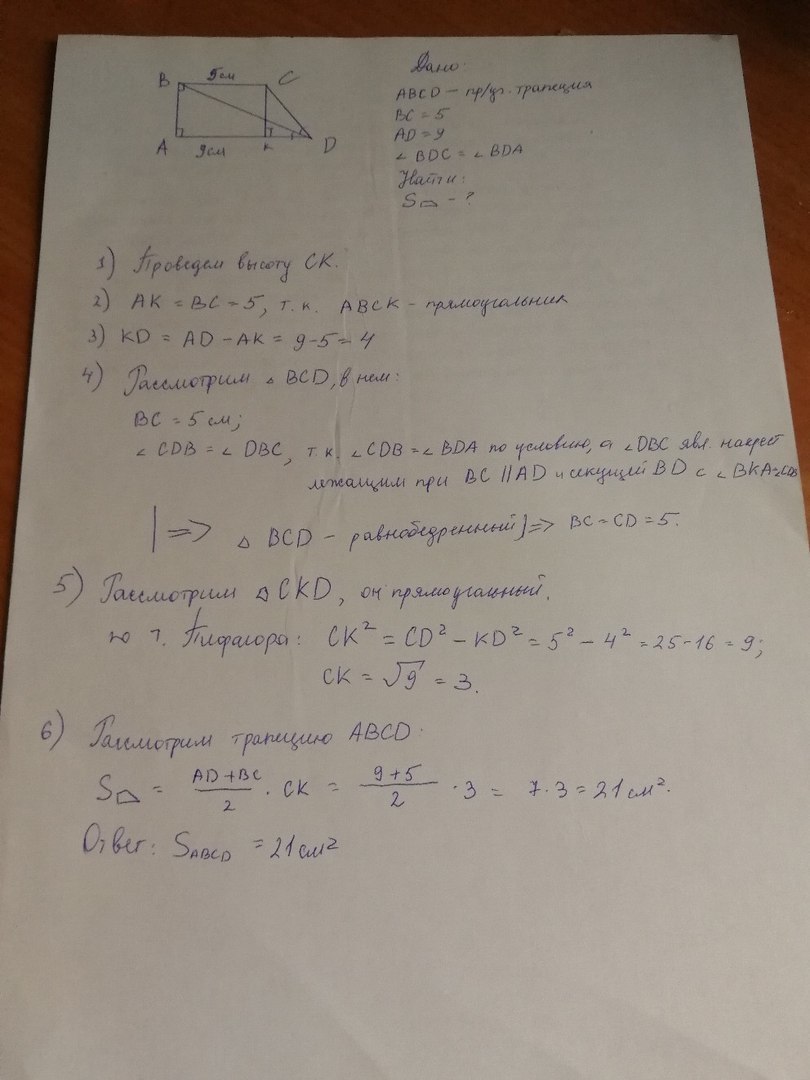 B 5см C
A 9см K D
Дано:
ABCD – пр/уг. трапеция
BC = 5
AD = 9
∠ BDC = ∠ BDA
Найти:
S⏢ – ?
1) Проведем высоту CK.
2) AK = BC = 5, т.к. ABCK – прямоугольник
3) KD = AD – AK = 9-5 = 4
4) Рассмотрим △ BCD, в нем:
BC = 5 см;
∠ CDB = ∠ DBC, т.к. ∠CDB = ∠ BDA по условию, а ∠DBC явл. накрест
лежащим при BC || AD и секущей BD с
| => △ BCD – равнобедренный | => BC = CD = 5.
5) Рассмотрим △ CKD, он прямоугольный.
по т. Пифагора: CK² = CD² – KD² = 5² – 4² = 25-16 = 9;
CK = √9 = 3.
6) Рассмотрим трапецию ABCD:
S⏢ = (AD+BC)/2 · CK = (9+5)/2 · 3 = 7·3 = 21 см².
Ответ: S_ABCD = 21 см²